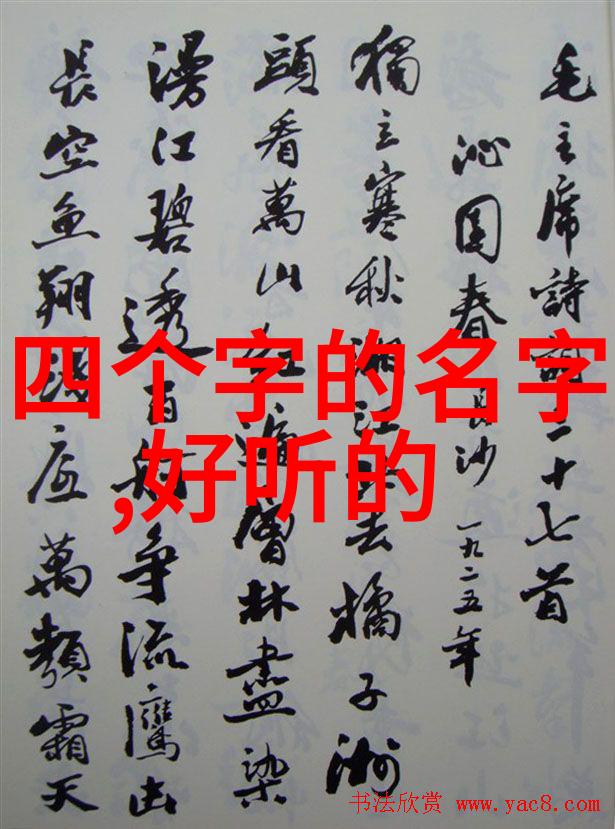 毛主席詩詞三十七首
沁園春 長沙 一九二五年
獨立寒秋湘江北去橘子洲
頭看萬山紅遍層林盡染
漫江碧透百舸争流鷹击
長空魚翔浅底萬類霜天
四个字的名字
,好听的
书法欣赏 www.yac8.com